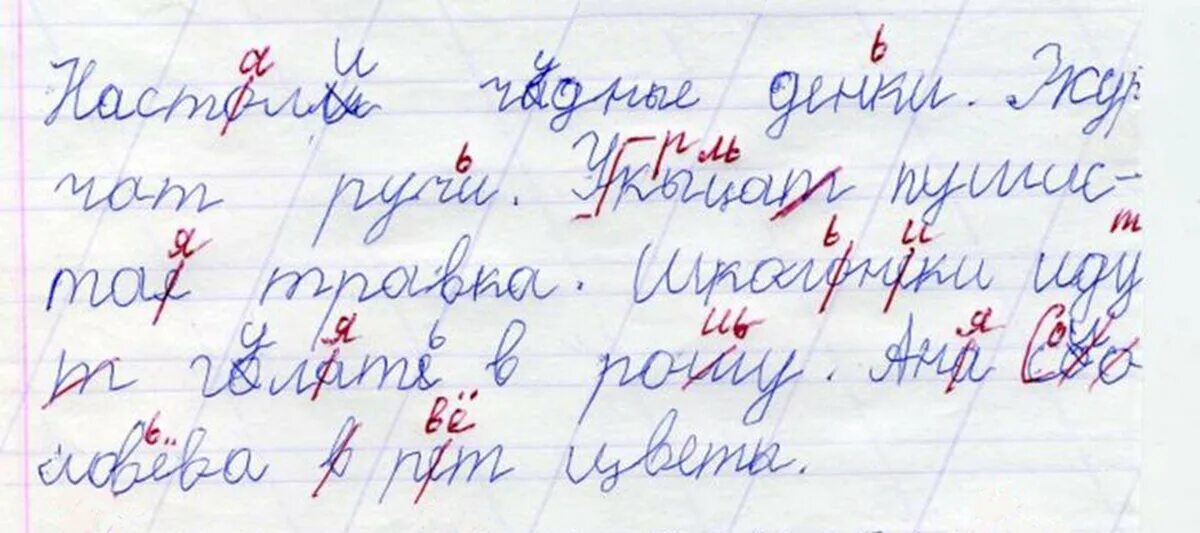 Настали чудные деньки. Жур
чат ручьи. Укрыцат пушис-
тая травка. Школьники иду
т гулять в рощу. Аня Соло
ловьёва рвёт цветы.